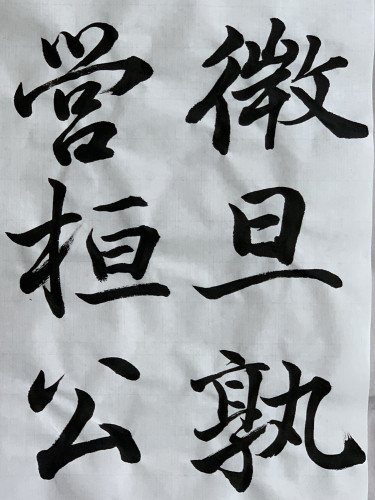 微旦孰
営桓公